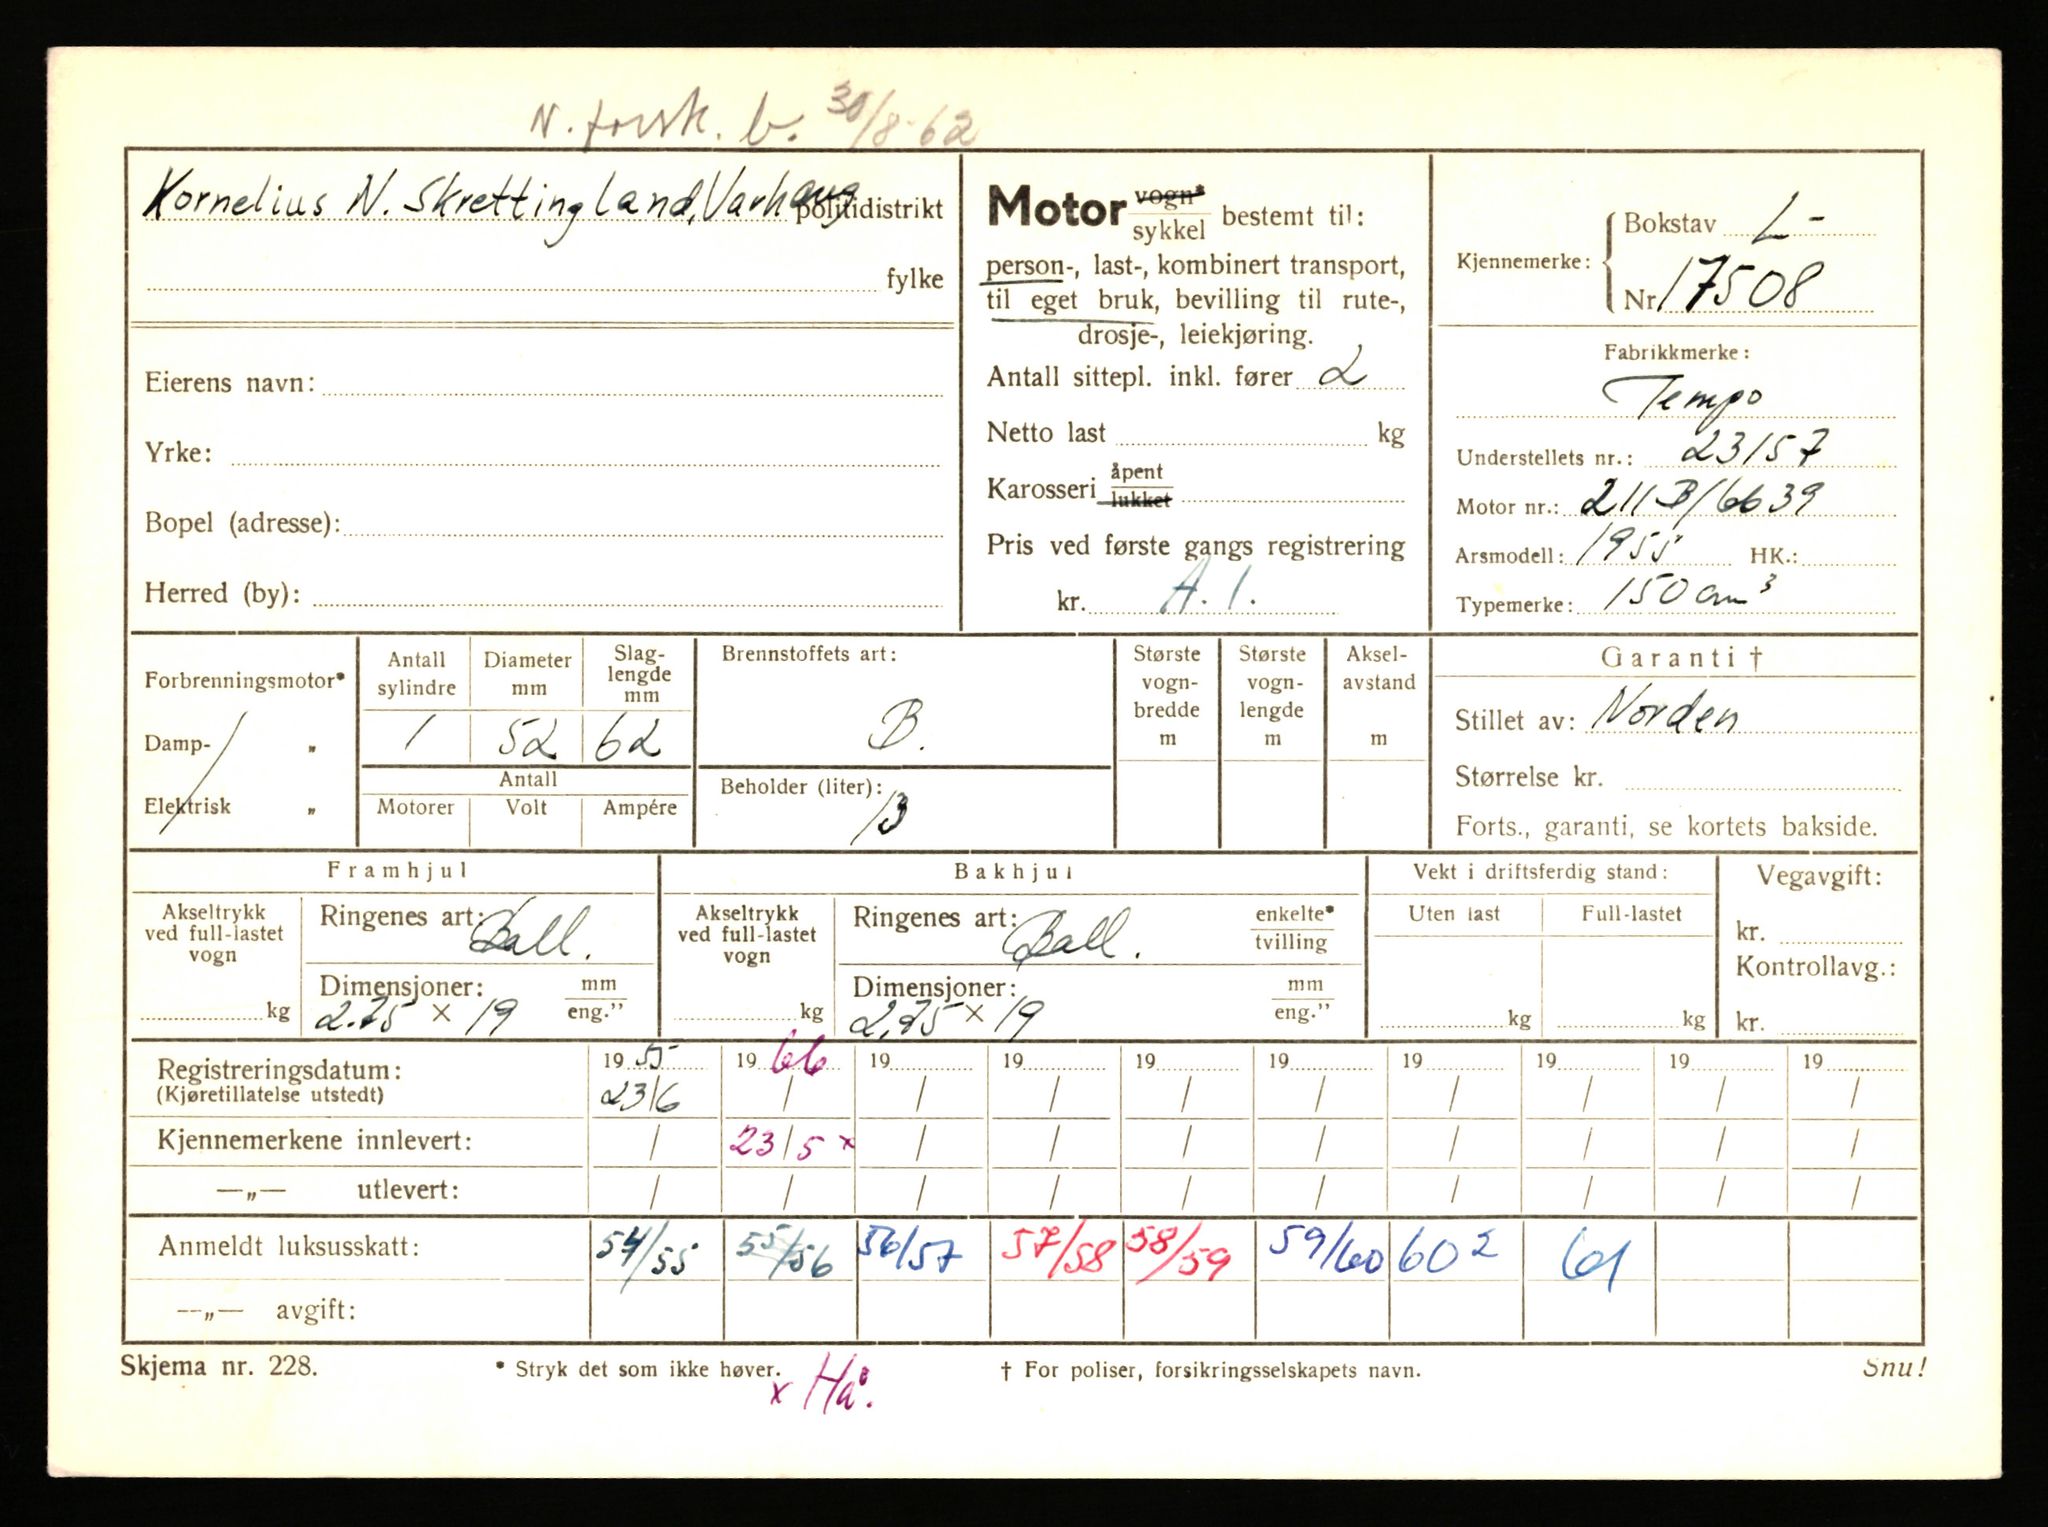 N. forsk. b. 30/8-62
Kornelius N. Skrettingland, Varhaug politidistrikt
fylke
Eierens navn:
Yrke:
Bopel (adresse):
Herred (by):
Motor vogn* sykkel bestemt til:
person-, last-, kombinert transport,
til eget bruk, bevilling til rute-,
drosje-, leiekjøring.
Antall sittepl. inkl. fører 2
Netto last kg
Karosseri åpent lukket
Pris ved første gangs registrering
kr. A. 1.
Kjennemerke: Bokstav L-
Nr 17508
Fabrikkmerke:
Tempo
Understellets nr.: 23157
Motor nr.: 211 B/6639
Arsmodell: 1955 HK.:
Typemerke: 150 cm³
Forbrenningsmotor*
Damp- „
Elektrisk „
Antall sylindre Diameter mm Slag-lengde mm
1 52 62
Antall
Motorer Volt Ampére
Brennstoffets art:
B.
Beholder (liter):
13
Største vogn-bredde m
Største vogn-lengde m
Aksel-avstand m
Garanti †
Stillet av: Norden
Størrelse kr.
Forts., garanti, se kortets bakside.
Framhjul
Akseltrykk ved full-lastet vogn
kg
Ringenes art: Ball.
Dimensjoner: mm eng."
2.75 x 19
Bakhjul
Akseltrykk ved full-lastet vogn
kg
Ringenes art: Ball. enkelte* tvilling
Dimensjoner: mm eng."
2.75 x 19
Vekt i driftsferdig stand:
Uten last Full-lastet
kg kg
Vegavgift:
kr.
Kontrollavg.:
kr.
Registreringsdatum: 19 55 19 66 19 19 19 19 19 19 19 19
(Kjøretillatelse utstedt) 23/6 / / / / / / / / /
Kjennemerkene innlevert: / 23/5 x / / / / / / / /
—„— utlevert: / / / / / / / / / /
Anmeldt luksusskatt: 54/55 55/56 56/57 57/58 58/59 59/60 60² 61
—„— avgift:
Skjema nr. 228. * Stryk det som ikke høver. † For poliser, forsikringsselskapets navn. Snu!
x Hå.